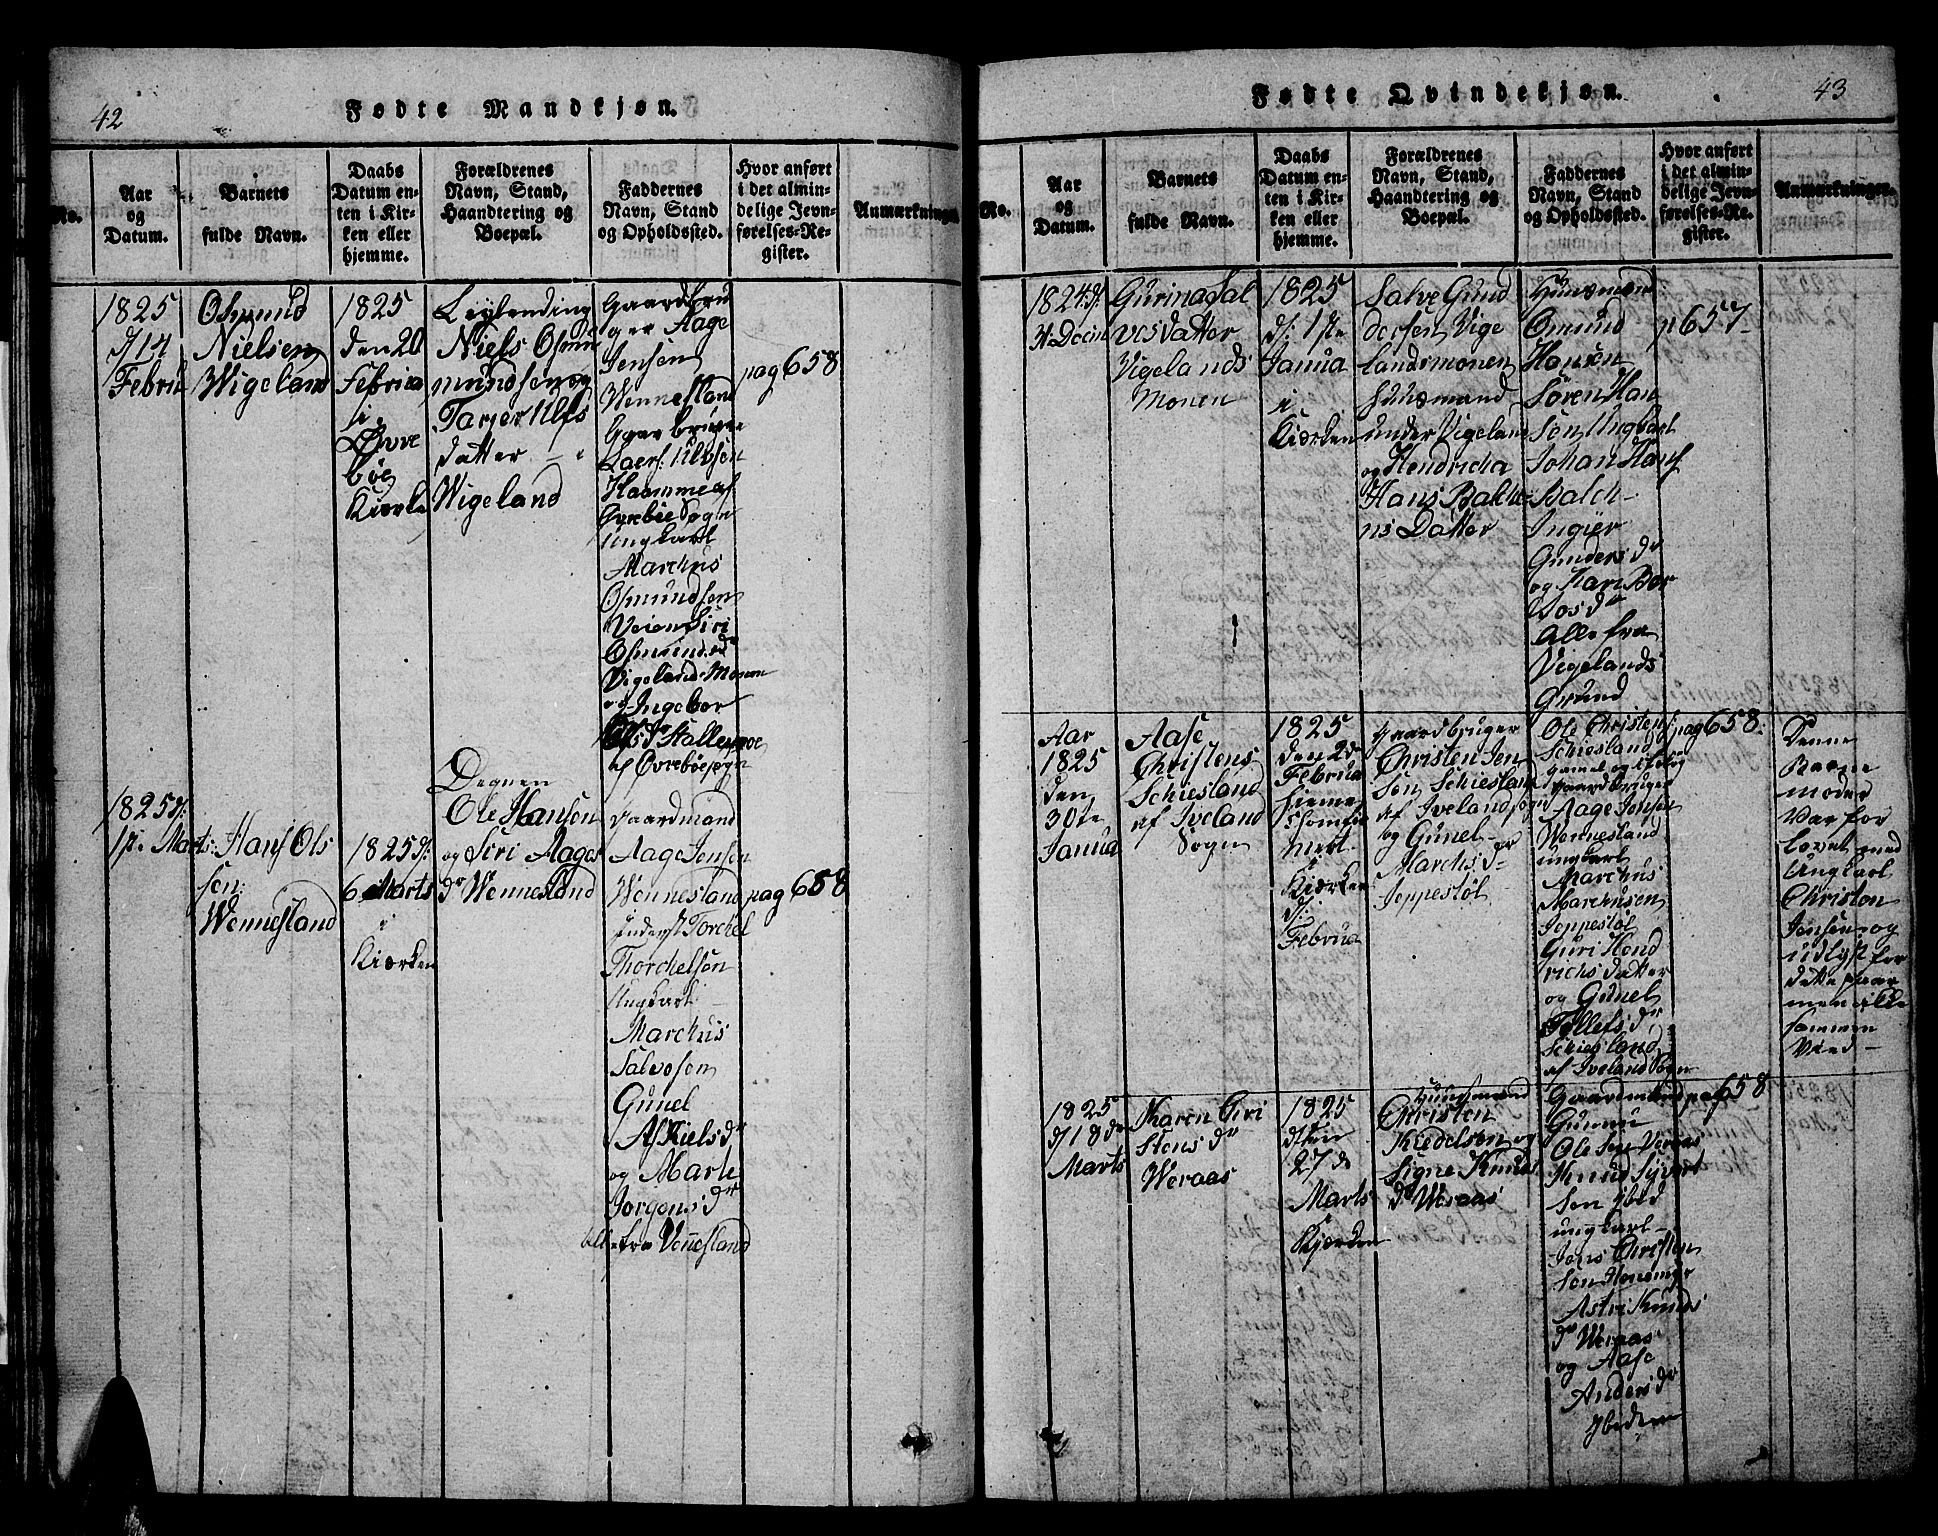 42
Fødte Mandkjøn.
No.
Aar
og
Datum.
Barnets
fulde Navn.
Daabs
Datum en-
ten i Kir-
ken eller
hjemme.
Forældrenes
Navn, Stand,
Haandtering og
Boepæl.
Faddernes
Navn, Stand
og Opholdssted.
Hvor anført
i det almin-
delige Jevn-
førelses-Re-
gister.
Anmærkninger
1825
d/14
Febru
Osmund
Nielsen
Wigeland
1825
den 20
Februa
i
Øvre
bøe
Kiørke
Leylending
Niels Osmu
mundsen og
Tarjer Ulfs
datter
Wigeland
Gaardbru
ger Aage
Jensen
Wennesland
Gaarbruge
Laers: Ulvsen
Haamme af
Øvrebøe Sogn
Ungkarl
Marchus
Osmundsen
Veien Siri
Osmunds dr
Vigelands Monen
og Ingebor
Ols dr Stallemoe
af Øvrebøesogn
pag 658
1825 d:
1ste Marts
Hans Ols
sen:
Wennesland
1825 d:
6 Marts
i
Kiørken
Degnen
Ole Hansen
og Siri Aages
dr Wennesland
Gaardmand
Aage Jensen
Wennesland
Inderst Torchel
Thorchelsen
Ungkarl
Marchus
Salvosen
Gunel
Askiels dr
og Marte
Jorgens dr
alle fra Vennesland
pag 658
Fødte Qvindekjøn.
43
No.
Aar
og
Datum.
Barnets
fulde Navn.
Daabs
Datum en-
ten i Kir-
ken eller
hjemme.
Forældrenes
Navn, Stand,
Haandtering og
Boepæl.
Faddernes
Navn, Stand
og Opholdssted.
Hvor anført
i det almin-
delige Jevn-
førelses-Re-
gister.
Anmærkninger.
1824 d.
Decm
Gurina Sal
ves datter
Vigelands
Monen
1825
d: 1ste
Janua
i
Kiørken
Salve Gund
dersen Vige
landsmonen
Huusmand
under Vigeland
og Hendricha
Hans Balche
ns Datter
Huusmand
Omund
Hansen
Søren Han
sen Ungkarl
Johan Hans
Balch
Ingier
Gunders dr
og Kari Ber
tos dr
Alle fra
Vigelands
Grund
p 657
Aar
1825
den
30te
Janua
Aase
Christens
Schiesland
af Iveland
Sogn
1825
den 2de
Februa
hieme
i
Kiørken
d:
Februa
Gaardbruger
Christen Jen
sen Schiesland
af Iveland sogn
og Gunel
Marchis dr
Joppestøl
Ole Christens
Schiesland
Gaardbruger
Aage Jensen
Wennesland
ungkarl
Marchus
Marchusen
Joppestøl
Guri Hend
richs datter
og Gunel
Tellefs dr
Schiesland
af Iveland Sogn
pag 658:
Denne
Barne
moder
Var for
lovet med
Ungkarl
Christen
Jensen og
udlyst for
dette paar
men ikke
sammen
Vied
1825
d/18de
Marts
Karen Chri
stens dr
Weraas
1825
den
27de
Marts
Kjørken
Huusmand
Christen
Kiedelsen og
Signe Knuds
dr Weraas
Gaardmand
Gunnu
Ole Sen Veraas
Knud Syvert
Sen Ibid
ungkarl
Jens Christen
Sen
Astri Knuds
dr Weraas
og Aase
Anders dr
Ibidem
pag 658